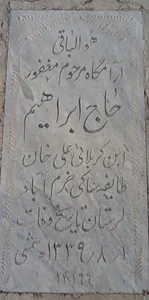 هو الباقی
آرامگاه مرحوم مغفور
حاج ابراهیم
ابن کربلائی علی خان
طایفه بناکی خرم آباد
لرستان تاریخ وفات
۱۳۳۹/۸/۱ شمسی